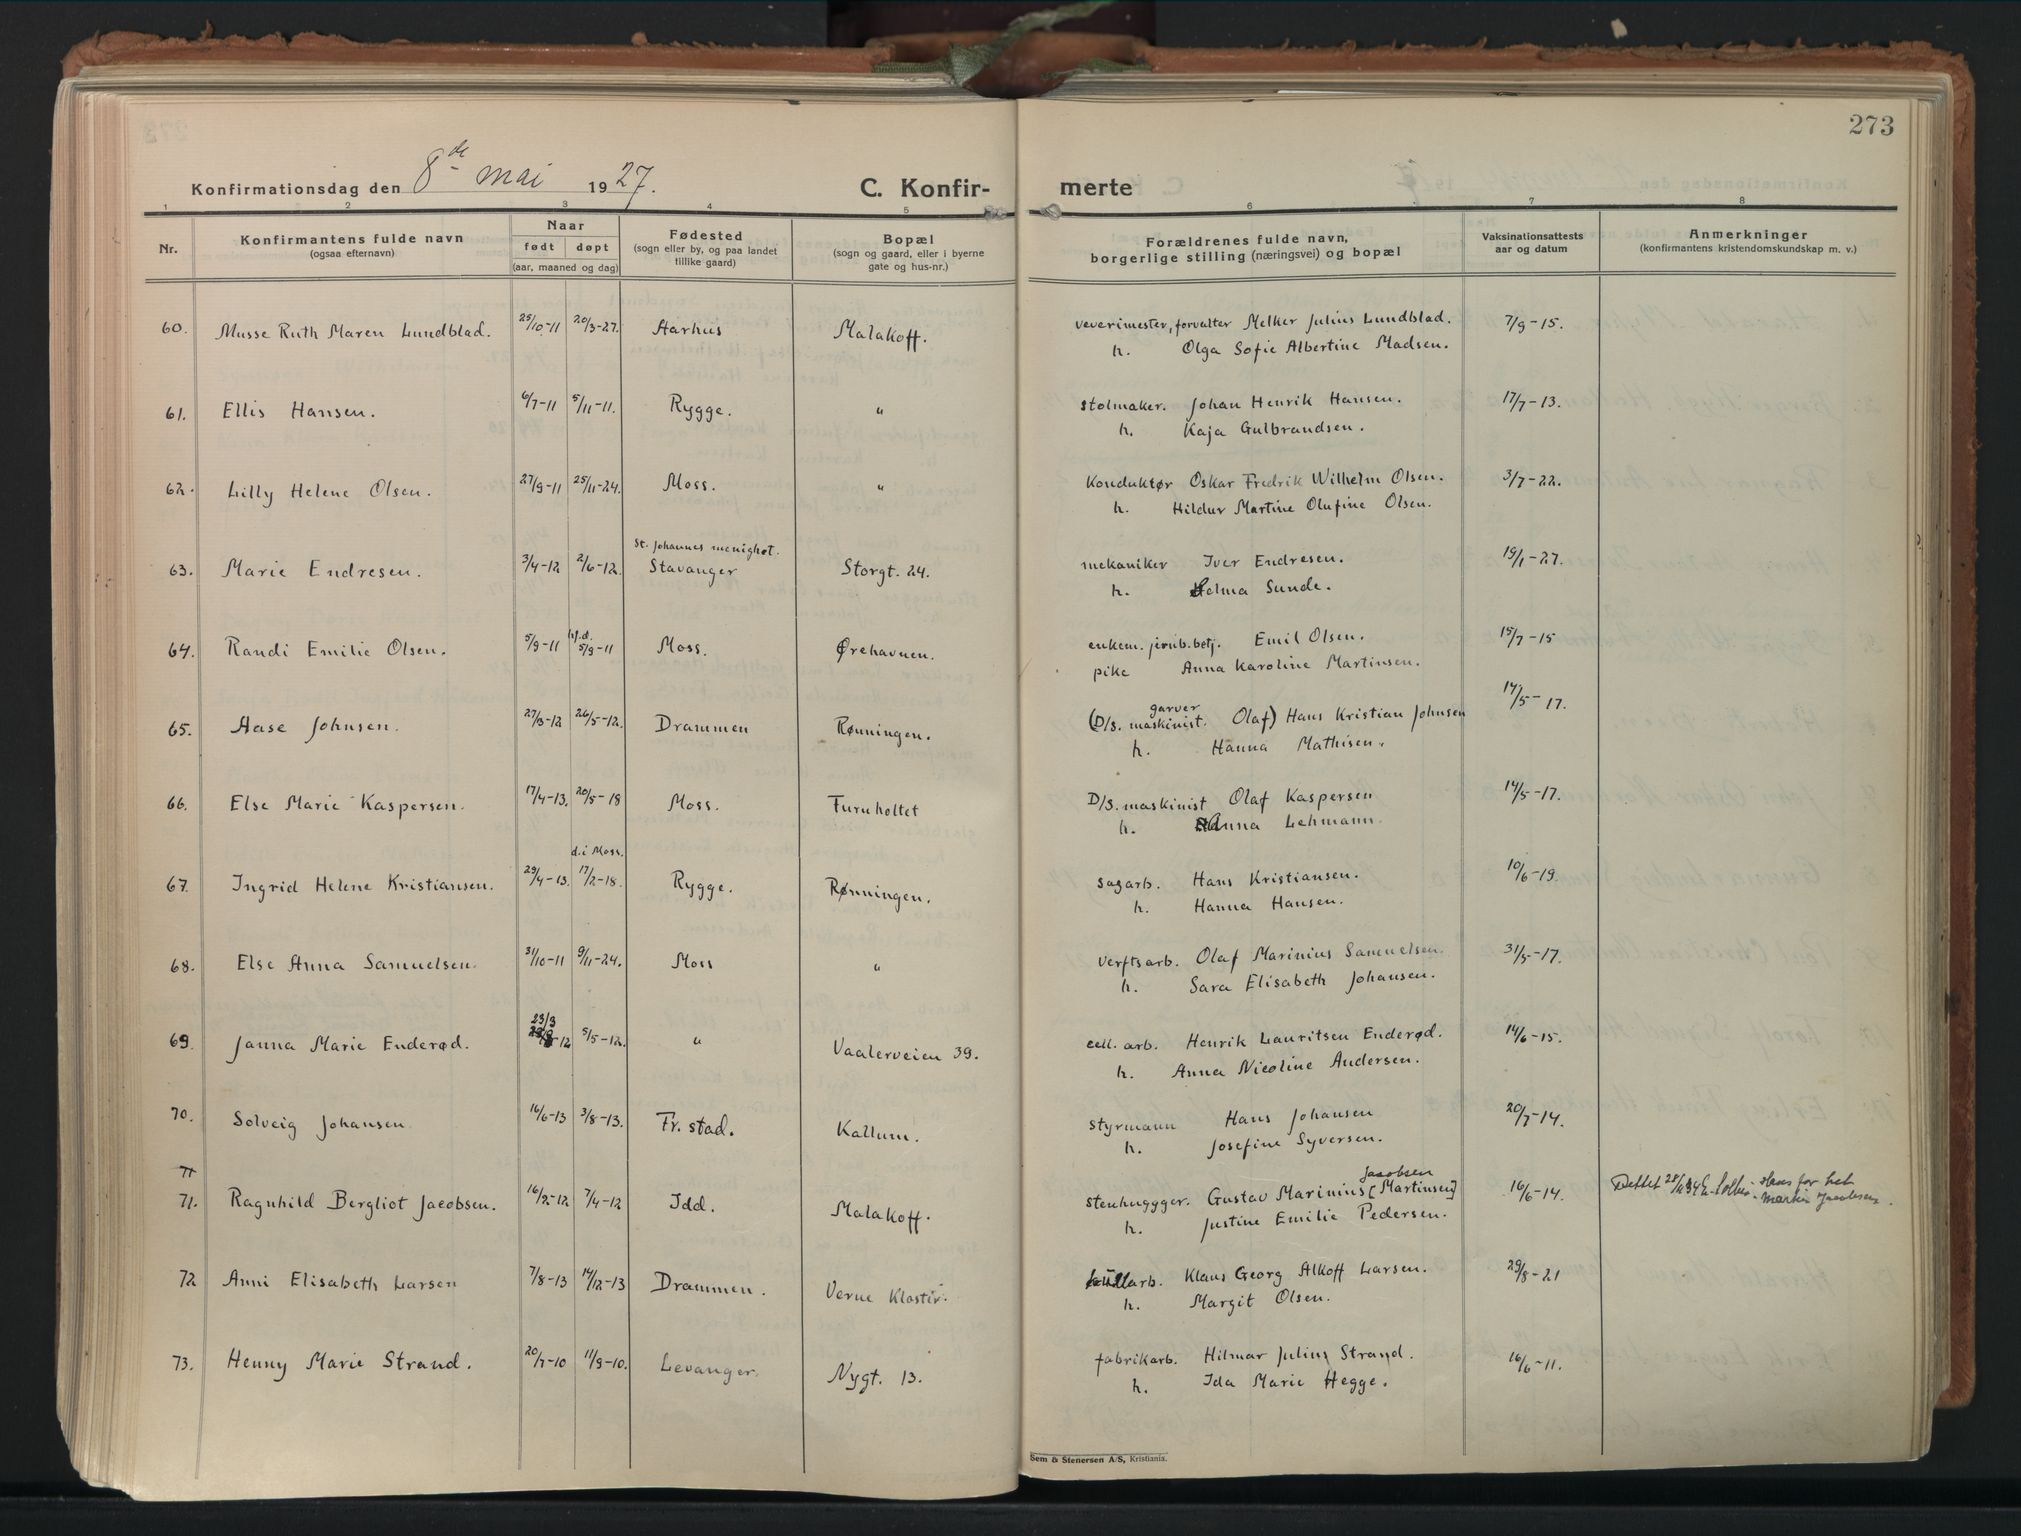 273
Konfirmationsdag den 8de mai 1927.
C. Konfir- merte
1 2 3 4 5 6 7 8
Nr. Konfirmantens fulde navn (ogsaa efternavn) Naar født døpt (aar, maaned og dag) Fødested (sogn eller by, og paa landet tillike gaard) Bopæl (sogn og gaard, eller i byerne gate og hus-nr.) Forældrenes fulde navn, borgerlige stilling (næringsvei) og bopæl Vaksinationsattests aar og datum Anmerkninger (konfirmantens kristendomskundskap m. v.)
60. Musse Ruth Maren Lundblad. 25/10-11 20/3-27. Aarhus Malakoff. veverimester, forvalter Melker Julius Lundblad. 7/9-15.
h. Olga Sofie Albertine Madsen.
61. Ellis Hansen. 6/7-11 5/11-11. Rygge. " stolmaker. Johan Henrik Hansen. 17/7-13.
h. Kaja Gulbrandsen.
62. Lilly Helene Olsen. 27/9-11 25/11-24. Moss. " Konduktør Oskar Fredrik Wilhelm Olsen. 3/7-22.
h. Hildur Martine Olufine Olsen.
St. Johannes menighet.
63. Marie Endresen. 3/4-12 2/6-12. Stavanger Storgt. 24. mekaniker Iver Endresen. 19/1-27.
h. Selma Sunde.
hj.d.
64. Randi Emilie Olsen. 5/9-11 5/9-11 Moss. Ørehavnen. enkem. jernb.betj. Emil Olsen. 15/7-15
pike Anna Karoline Martinsen.
garver
65. Aase Johnsen. 27/3-12 26/5-12. Drammen Rønningen. (D/S. maskinist. Olaf) Hans Kristian Johnsen 14/5-17.
h. Hanna Mathisen.
66. Else Marie Kaspersen. 17/4-13. 20/5-18 Moss. Furuholtet D/S. maskinist Olaf Kaspersen 14/5-17.
h. Anna Lehmann.
d. i Moss.
67. Ingrid Helene Kristiansen. 29/4-13. 17/2-18. Rygge. Rønningen. sagarb. Hans Kristiansen. 10/6-19.
h. Hanna Hansen.
68. Else Anna Samuelsen. 31/10-11 9/11-24. Moss " Verftsarb. Olaf Marinius Samuelsen. 31/5-17.
h. Sara Elisabeth Johansen.
23/3
69. Janna Marie Enderød. -12 5/5-12. " Vaalerveien 39. cell. arb. Henrik Lauritsen Enderød. 14/6-15.
h. Anna Nicoline Andersen.
70. Solveig Johansen 16/6-13 3/8-13. Fr. stad. Kallum. styrmann Hans Johansen 20/7-14.
h. Josefine Syversen.
71
Jacobsen
71. Ragnhild Bergliot Jacobsen. 16/2-12 7/4-12 Idd. Malakoff. stenhuggger. Gustav Marinius [Martinsen] 16/6-14.
h. Justine Emilie Pedersen.
72 Anni Elisabeth Larsen 7/8-13 14/12-13 Drammen. Verne Kloster. arb. Klaus Georg Alkoff Larsen. 29/8-21
h. Margit Olsen.
73. Henny Marie Strand. 20/7-10 11/9-10. Levanger. Nygt. 13. fabrikarb. Hilmar Julius Strand. 16/6-11.
h. Ida Marie Hegge.
Sem & Stenersen A/S, Kristiania.